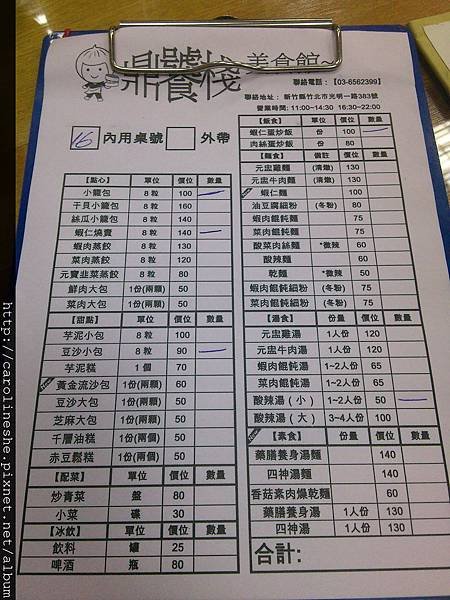 鼎饕棧美食館~
聯絡電話:【03-6562399】
聯絡地址: 新竹縣竹北市光明一路383號
營業時間: 11:00~14:30 16:30~22:00
16 內用桌號 外帶
【點心】 單位 價位 數量
小籠包 8粒 100
干貝小籠包 8粒 160
絲瓜小籠包 8粒 140
蝦仁燒賣 8粒 140
蝦肉蒸餃 8粒 130
菜肉蒸餃 8粒 120
元寶韭菜蒸餃 8粒 80
鮮肉大包 1份(兩顆) 50
菜肉大包 1份(兩顆) 50
【甜點】 單位 價位 數量
芋泥小包 8粒 100
豆沙小包 8粒 90
芋泥糕 1個 70
黃金流沙包 1份(兩顆) 60
豆沙大包 1份(兩顆) 50
芝麻大包 1份(兩顆) 50
千層油糕 1份(兩個) 50
赤豆鬆糕 1份(兩個) 50
【配菜】 單位 價位 數量
炒青菜 盤 80
小菜 碟 30
【冰飲】 單位 價位 數量
飲料 罐 25
啤酒 瓶 80
【飯食】 份量 價位 數量
蝦仁蛋炒飯 份 100
肉絲蛋炒飯 份 80
【麵食】 備註 價位 數量
元盅雞麵 (清燉) 130
元盅牛肉麵 (清燉) 130
蝦仁麵 100
油豆腐細粉 (冬粉) 80
蝦肉餛飩麵 75
菜肉餛飩麵 75
酸菜肉絲麵 *微辣 60
酸辣麵 60
乾麵 *微辣 50
蝦肉餛飩細粉 (冬粉) 75
菜肉餛飩細粉 (冬粉) 75
【湯食】 份量 價位 數量
元盅雞湯 1人份 120
元盅牛肉湯 1人份 120
蝦肉餛飩湯 1~2人份 65
菜肉餛飩湯 1~2人份 65
酸辣湯(小) 1~2人份 50
酸辣湯(大) 3~4人份 100
【素食】 份量 價位 數量
藥膳養身湯麵 140
四神湯麵 140
香菇素肉燥乾麵 60
藥膳養身湯 1人份 130
四神湯 1人份 130
合計:
http://carolineshe.pixnet.net/album